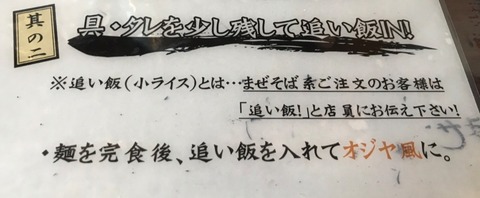 其の二
具・タレを少し残して追い飯IN!
※追い飯(小ライス)とは…まぜそば系ご注文のお客様は
「追い飯!」と店員にお伝え下さい!
・麺を完食後、追い飯を入れてオジヤ風に。